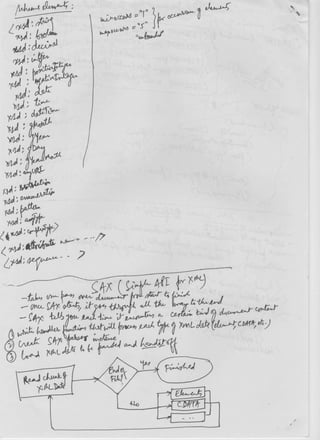 Schema elements:
<xsd: string
xsd: boolean
xsd: decimal
xsd: integer
xsd: positiveInteger
xsd: negativeInteger
xsd: date
xsd: time
xsd: dateTime
xsd: gMonth
xsd: gYear
xsd: gDay
xsd: gYearMonth
xsd: anyURI
xsd: restriction
xsd: enumeration
xsd: pattern
xsd: anyType
<xsd: complexType>
<xsd: attribute name= ... />
<xsd: sequence ... >
minoccurs = "1"
maxoccurs = "5"
"unbounded"
for occurrence of elements
SAX (Simple API for XML)
- takes one pass over document from start to finish
- once SAX starts, it goes through all the way to the end
- SAX tells you each time it encounters a certain kind of document content
① Write handler functions that will process each type of XML data (element, CDATA, etc.)
② Create SAX parser instance
③ Load XML data to be parsed and hand it off
Read chunk of XML Data
End of File?
Yes
Finished
No
Elements
CDATA
...